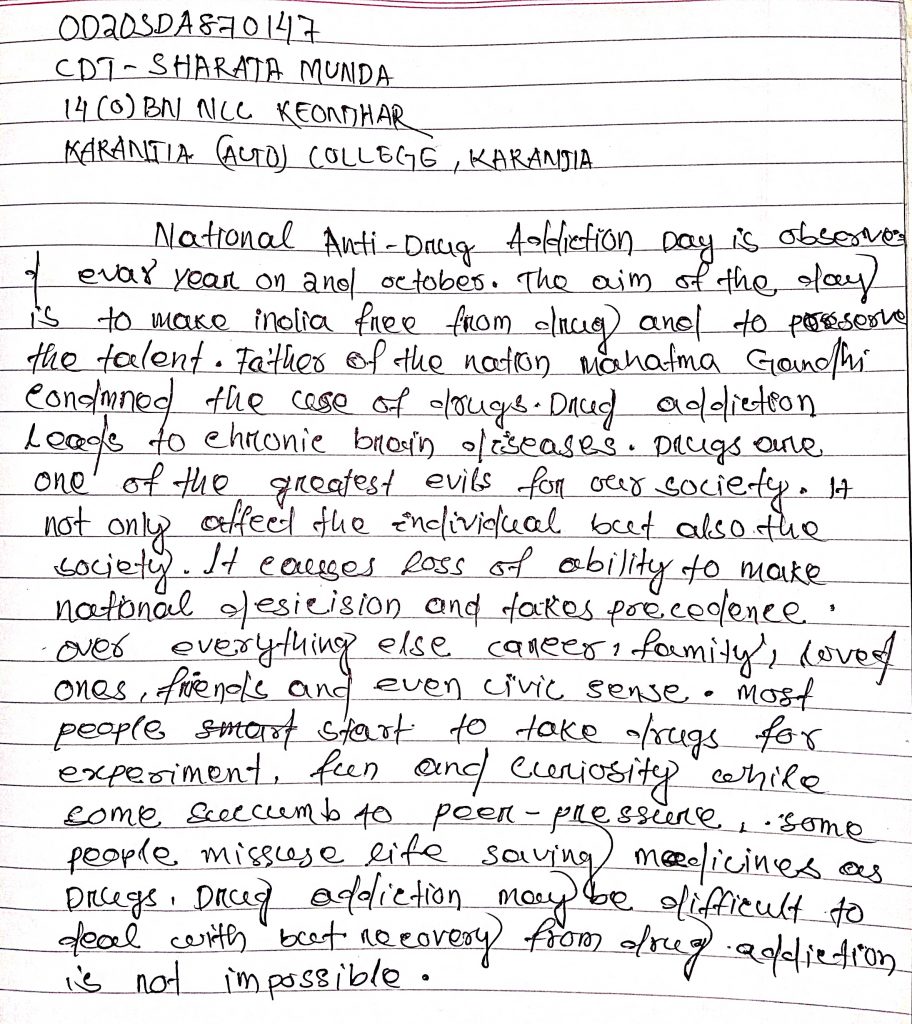 OD20SDA870147
CDT - SHARATA MUNDA
14 (O) BN NCC KEONJHAR
KARANJIA (AUTO) COLLEGE, KARANJIA
National Anti-Drug Addiction Day is observe
d evar year on 2nd october. The aim of the day
is to make india free from drug and to preserve
the talent. Father of the nation Mahatma Gandhi
Condmned the case of drugs. Drug addiction
Leads to chronic brain diseases. Drugs are
one of the greatest evils for our society. It
not only affect the individual but also the
society. It causes loss of ability to make
national desicision and takes precedence.
over everything else career, family, loved
ones, friends and even civic sense. Most
people smart start to take drugs for
experiment, fun and curiosity while
some succumb to peer-pressure, some
people missuse life saving medicines as
Drugs. Drug addiction may be difficult to
deal with but recovery from drug addiction
is not impossible.